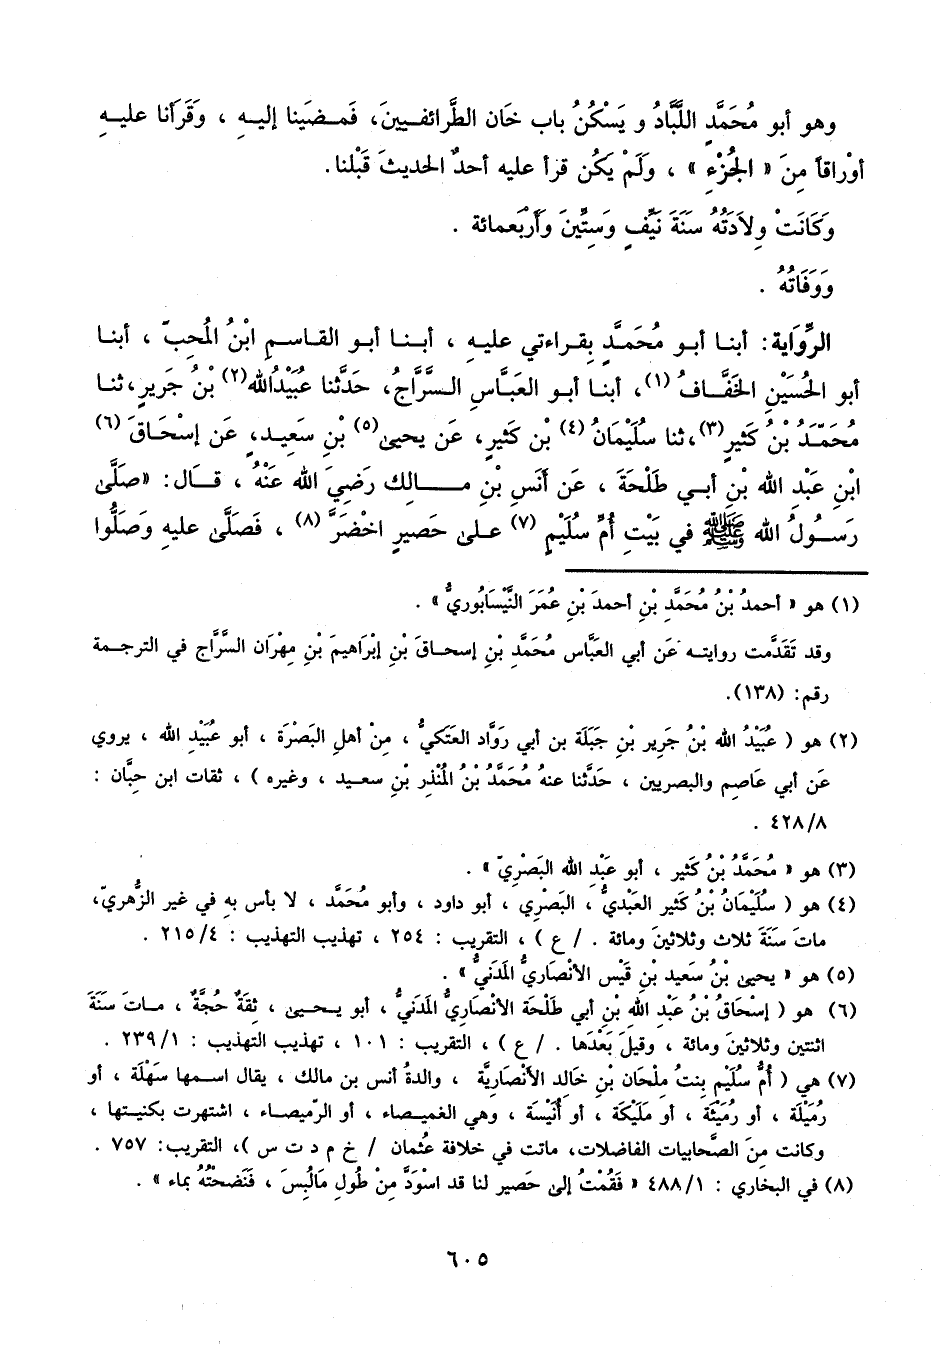 وهو أبو مُحَمَّدٍ اللَّبَّادُ و يَسْكُنُ باب خَان الطَّرائفيينَ، فَمضَينا إليهِ ، وَقَرَأنا عليهِ
أوْراقاً مِنَ « الجُزْءِ » ، ولَمْ يَكُن قرأ عليه أحدٌ الحديثَ قَبْلنا.
وَكَانَتْ وِلاَدَتُهُ سَنَةَ نَيِّفٍ وَسِتِّينَ وَأَرْبَعمائة .
وَوَفَاتُهُ .
الرِّوَاية: أبنا أبو مُحَمَّدٍ بِقراءتي عليهِ ، أبنا أبو القاسمِ ابْنُ المُحِبّ ، أبنا
أبو الحُسَيْنِ الخَفَّافُ (١)، أبنا أبو العَبَّاسِ السرَّاجُ، حَدَّثنا عُبَيْدُالله(٢) بْنُ جَريرٍ،ثنا
مُحَمّدُ بْنُ كَثيرٍ(٣)،ثنا سُلَيْمَانُ(٤) بْنِ كَثيرٍ، عَن يحيىٰ(٥) بْنِ سَعِيدٍ، عَن إسْحَاقَ (٦)
ابْنِ عَبْدِ الله بْنِ أبي طَلْحَةَ ، عَن أَنَسِ بْنِ مالك رَضِيَ الله عَنْهُ ، قال: «صَلَّىٰ
رَسولُ الله ﷺ في بَيْتِ أُمِّ سُلَيْمٍ (٧) علىٰ حَصيرٍ اخْضَرَّ (٨) ، فَصَلَّىٰ عليهِ وَصَلُّوا
(١) هو « أحمدُ بْنُ مُحَمَّدِ بْنِ أحمدَ بْنِ عُمَرَ النَّيْسَابُوريُّ » .
وقد تَقَدَّمت روايته عَن أبي العَبَّاس مُحَمَّدِ بْنِ إسحاقَ بْنِ إبْرَاهيمَ بْنِ مِهْرَان السرَّاج في الترجمة
رقم: (١٣٨).
(٢) هو ( عُبَيْدُ الله بْنُ جَرير بْنِ جَبَلَة بن أبي رَوَّاد العَتَكيُّ ، مِنْ أهلِ البَصْرَة ، أبو عُبَيْدِ الله ، يروي
عَن أبي عَاصِمٍ والبصريين ، حَدَّثنا عنهُ مُحَمَّدُ بْنُ المُنْذر بْنِ سعيد ، وغيره ) ، ثقات ابن حِبَّان :
٤٢٨/٨ .
(٣) هو « مُحَمَّدُ بْنُ كَثير ، أبو عَبْدِ الله البَصْرِيّ » .
(٤) هو ( سُلَيْمَانُ بْنُ كَثير العَبْديُّ ، البَصْرِي ، أبو داود ، وأبو مُحَمَّد ، لا بأس به في غير الزُّهريّ،
ماتَ سَنَةَ ثلاث وثلاثينَ ومائة . / ع ) ، التقريب : ٢٥٤ ، تهذيب التهذيب : ٢١٥/٤ .
(٥) هو « يحيىٰ بْنُ سَعيد بْنِ قَيْس الأنْصَاريُّ المَدَنيُّ » .
(٦) هو ( إسْحَاقُ بْنُ عَبْدِ الله بْنِ أبي طَلْحَة الأنْصَاريُّ المَدَنيُّ ، أبو يحيىٰ ، ثِقَةٌ حُجَّةٌ ، ماتَ سَنَةَ
اثنتين وثلاثينَ ومائة ، وقيلَ بَعْدَها . / ع ) ، التقريب : ١٠١ ، تهذيب التهذيب : ٢٣٩/١ .
(٧) هي ( أُمُّ سُلَيْم بِنتُ مِلْحَان بْنِ خَالد الأنْصَاريَّة ، والدةُ أنس بن مالك، يقال اسمها سَهْلَة ، أو
رُمَيْلَة ، أو رُمَيْثَة ، أو مَلَيْكَة ، أو أُنَيْسَة ، وهي الغميصاء ، أو الرّميصاء ، اشتهرت بكنيتها ،
وكانت مِنَ الصَّحابيات الفاضلات، ماتت في خلافة عُثمان / خ م د ت س )، التقريب: ٧٥٧ .
(٨) في البخاري : ٤٨٨/١ « فَقُمْتُ إلىٰ حَصير لنا قد اسْوَدَّ مِنْ طُولِ مَالُبِسَ ، فَنَضحْتُهُ بماء » .
٦٠٥